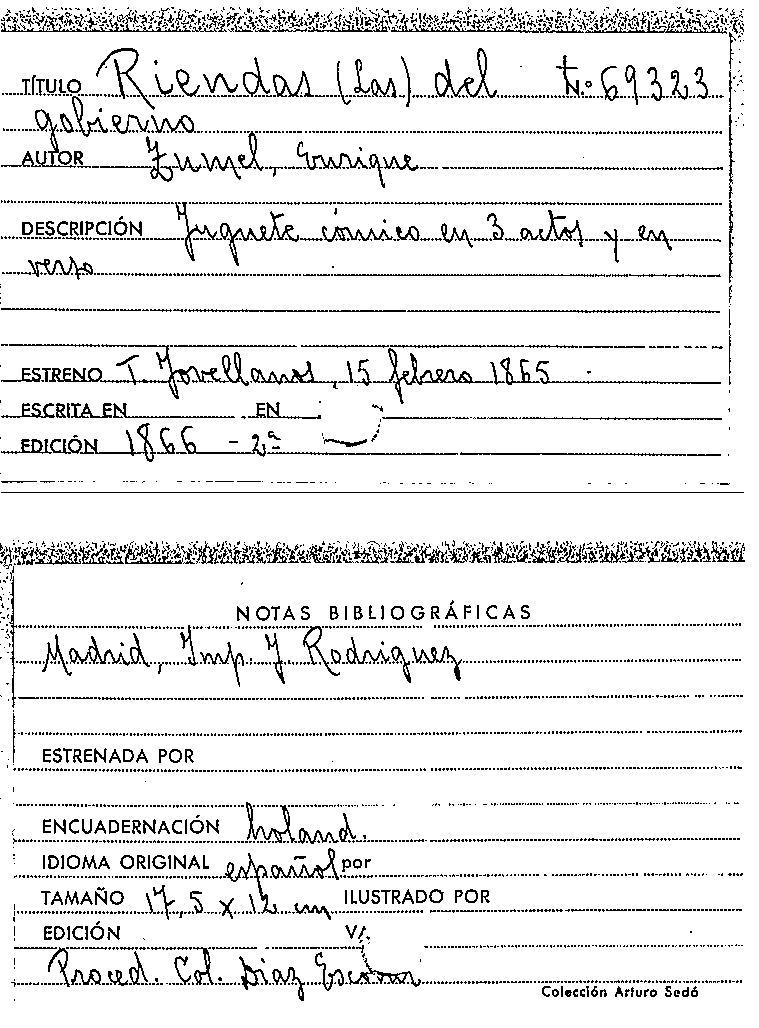 TÍTULO Riendas (Las) del N.º 69323
gobierno
AUTOR Zumel, Enrique
DESCRIPCIÓN Juguete cómico en 3 actos y en
verso
ESTRENO T. Jovellanos, 15 febrero 1865
ESCRITA EN EN
EDICIÓN 1866 - 2ª
NOTAS BIBLIOGRÁFICAS
Madrid, Imp. J. Rodriguez
ESTRENADA POR
ENCUADERNACIÓN holand.
IDIOMA ORIGINAL español por
TAMAÑO 17,5 x 12 cm ILUSTRADO POR
EDICIÓN V/.
Proced. Col. Diaz Escovar
Colección Arturo Sedó